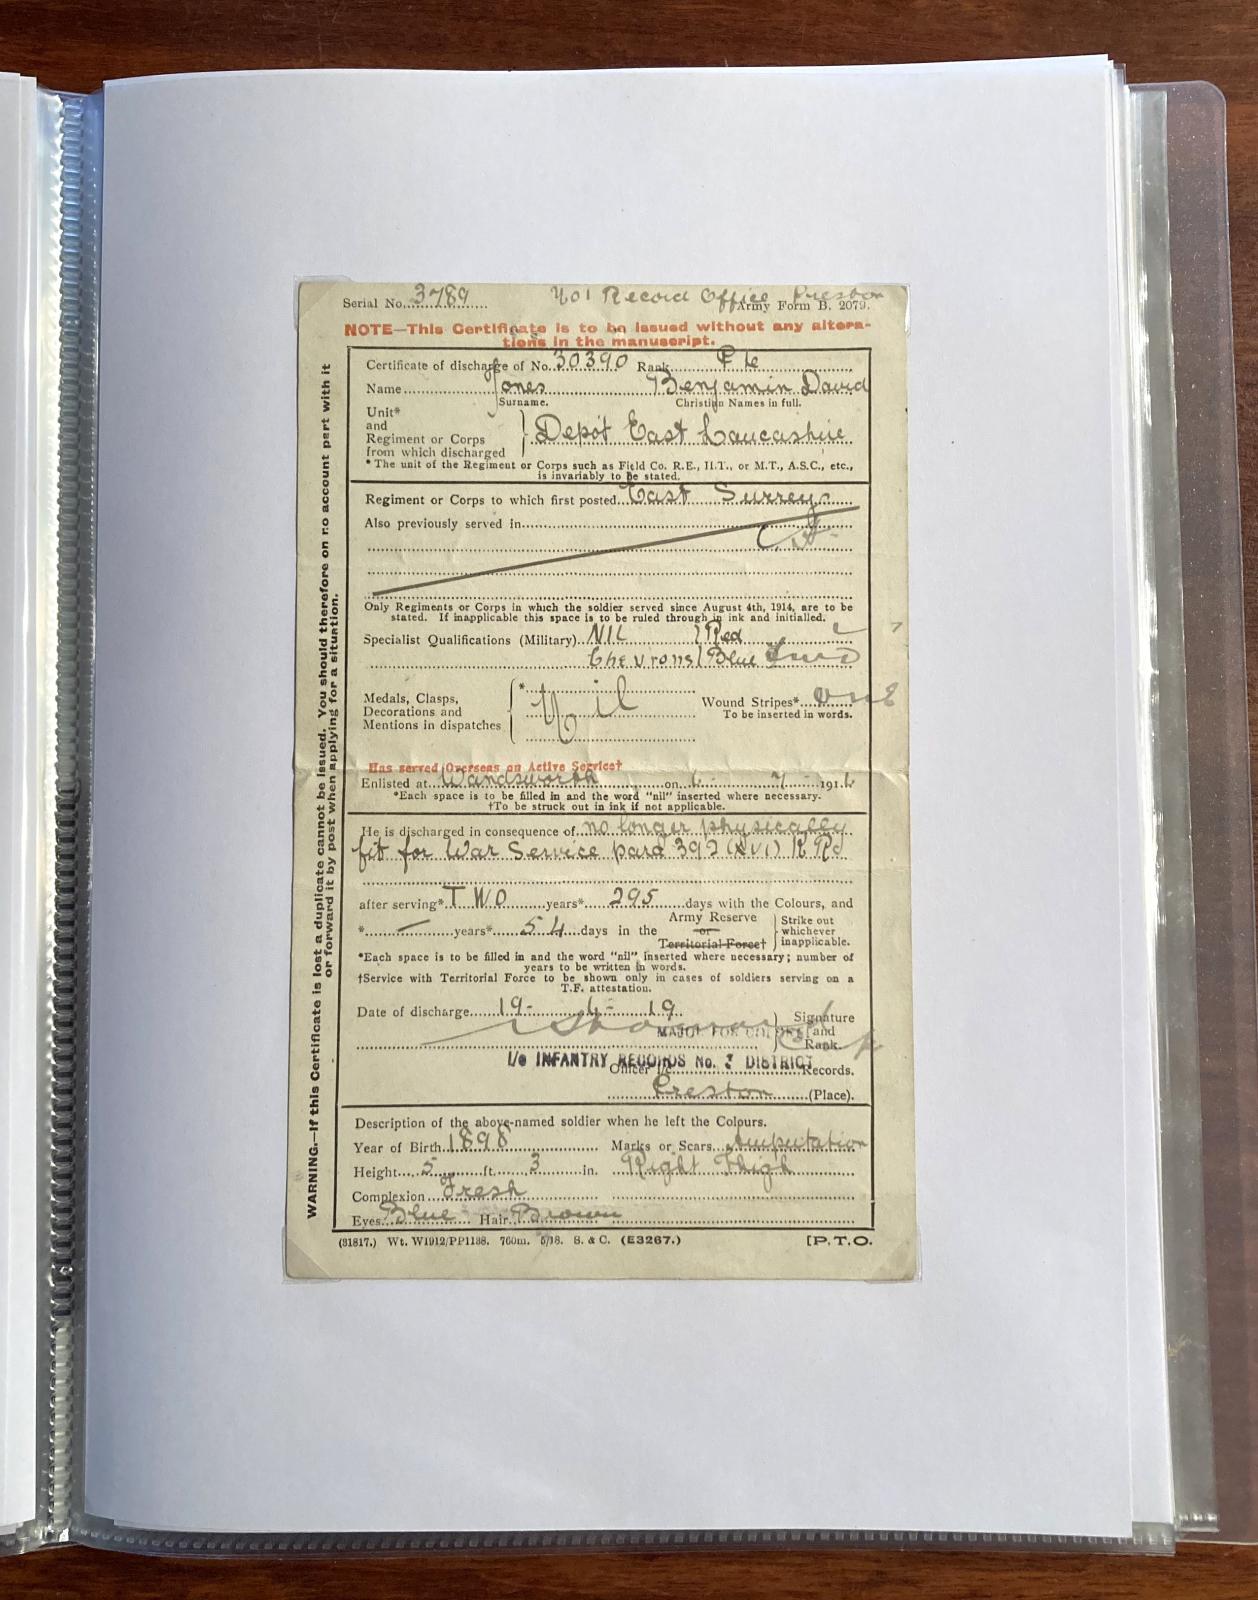 Serial No. 3789 No 1 Record Office Preston
Army Form B. 2079.
NOTE—This Certificate is to be issued without any altera-
tions in the manuscript.
WARNING.—If this Certificate is lost a duplicate cannot be issued. You should therefore on no account part with it
or forward it by post when applying for a situation.
Certificate of discharge of No. 30390 Rank Pte
Name Jones Benjamin David
Surname. Christian Names in full.
Unit*
and
Regiment or Corps
from which discharged
Depôt East Lancashire
* The unit of the Regiment or Corps such as Field Co. R.E., H.T., or M.T., A.S.C., etc.,
is invariably to be stated.
Regiment or Corps to which first posted East Surreys
Also previously served in
Only Regiments or Corps in which the soldier served since August 4th, 1914, are to be
stated. If inapplicable this space is to be ruled through in ink and initialled.
Specialist Qualifications (Military) NIL Red
Chevrons Blue two
Medals, Clasps,
Decorations and
Mentions in dispatches
* Nil
Wound Stripes* one
To be inserted in words.
Has served Overseas on Active Service†
Enlisted at Wandsworth on 6 7 1916
*Each space is to be filled in and the word "nil" inserted where necessary.
†To be struck out in ink if not applicable.
He is discharged in consequence of no longer physically
fit for War Service para 392 (XVI) K R
after serving* TWO years* 295 days with the Colours, and
* — years* 54 days in the Army Reserve
or
Territorial Force†
Strike out
whichever
inapplicable.
*Each space is to be filled in and the word "nil" inserted where necessary; number of
years to be written in words.
†Service with Territorial Force to be shown only in cases of soldiers serving on a
T.F. attestation.
Date of discharge 19- 6- 19
Signature
and
Rank.
MAJOR FOR COLONEL
I/c INFANTRY RECORDS No. DISTRICT
Officer i/c Records.
Preston (Place).
Description of the above-named soldier when he left the Colours.
Year of Birth 1898 Marks or Scars Amputation
Height 5 ft. 3 in. Right Thigh
Complexion Fresh
Eyes Blue Hair Brown
(31817.) Wt. W1912/PP1138. 760m. 5/18. S. & C. (E3267.) [P.T.O.